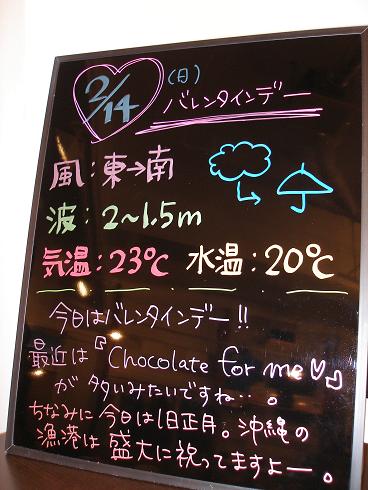 2/14 (日) バレンタインデー
風:東→南
波:2~1.5m
気温:23℃ 水温:20℃
今日はバレンタインデー!!
最近は『Chocolate for me♡』
が多いみたいですね‥。
ちなみに今日は旧正月。沖縄の
漁港は盛大に祝ってますよー。